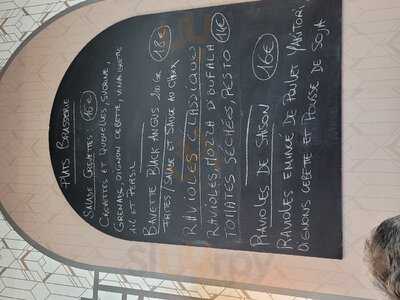 PLATS BRASSERIE
SALADE CREVETTES : 16€
CREVETTES ET QUENELLES, SUCRINE,
GRENADE, OIGNON CEBETTE, VINAIGRETTE
AIL ET PERSIL
BAVETTE BLACK ANGUS 200 GR 18€
FRITES/SALADE ET SAUCE AU CHOIX
RAVIOLES CLASSIQUES
RAVIOLES, MOZZA D BUFALA 14€
TOMATES SÉCHÉES, PESTO
RAVIOLES DE SAISON 16€
RAVIOLES EMINCÉ DE POULET YAKITORI
OIGNONS CEBETTE ET POUSSE DE SOJA